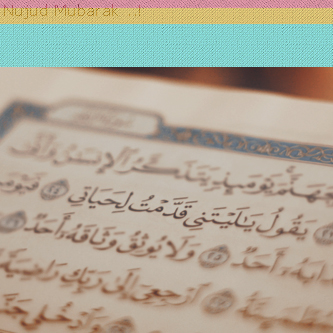 Nujud Mubarak ..!
يَوْمَئِذٍ يَتَذَكَّرُ ٱلْإِنسَٰنُ وَأَنَّىٰ
يَقُولُ يَٰلَيْتَنِى قَدَّمْتُ لِحَيَاتِى ٢٤
أَحَدٌ ٢٥ وَلَا يُوثِقُ وَثَاقَهُۥٓ أَحَدٌ
ٱرْجِعِىٓ إِلَىٰ رَبِّكِ رَاضِيَةً
وَٱدْخُلِى